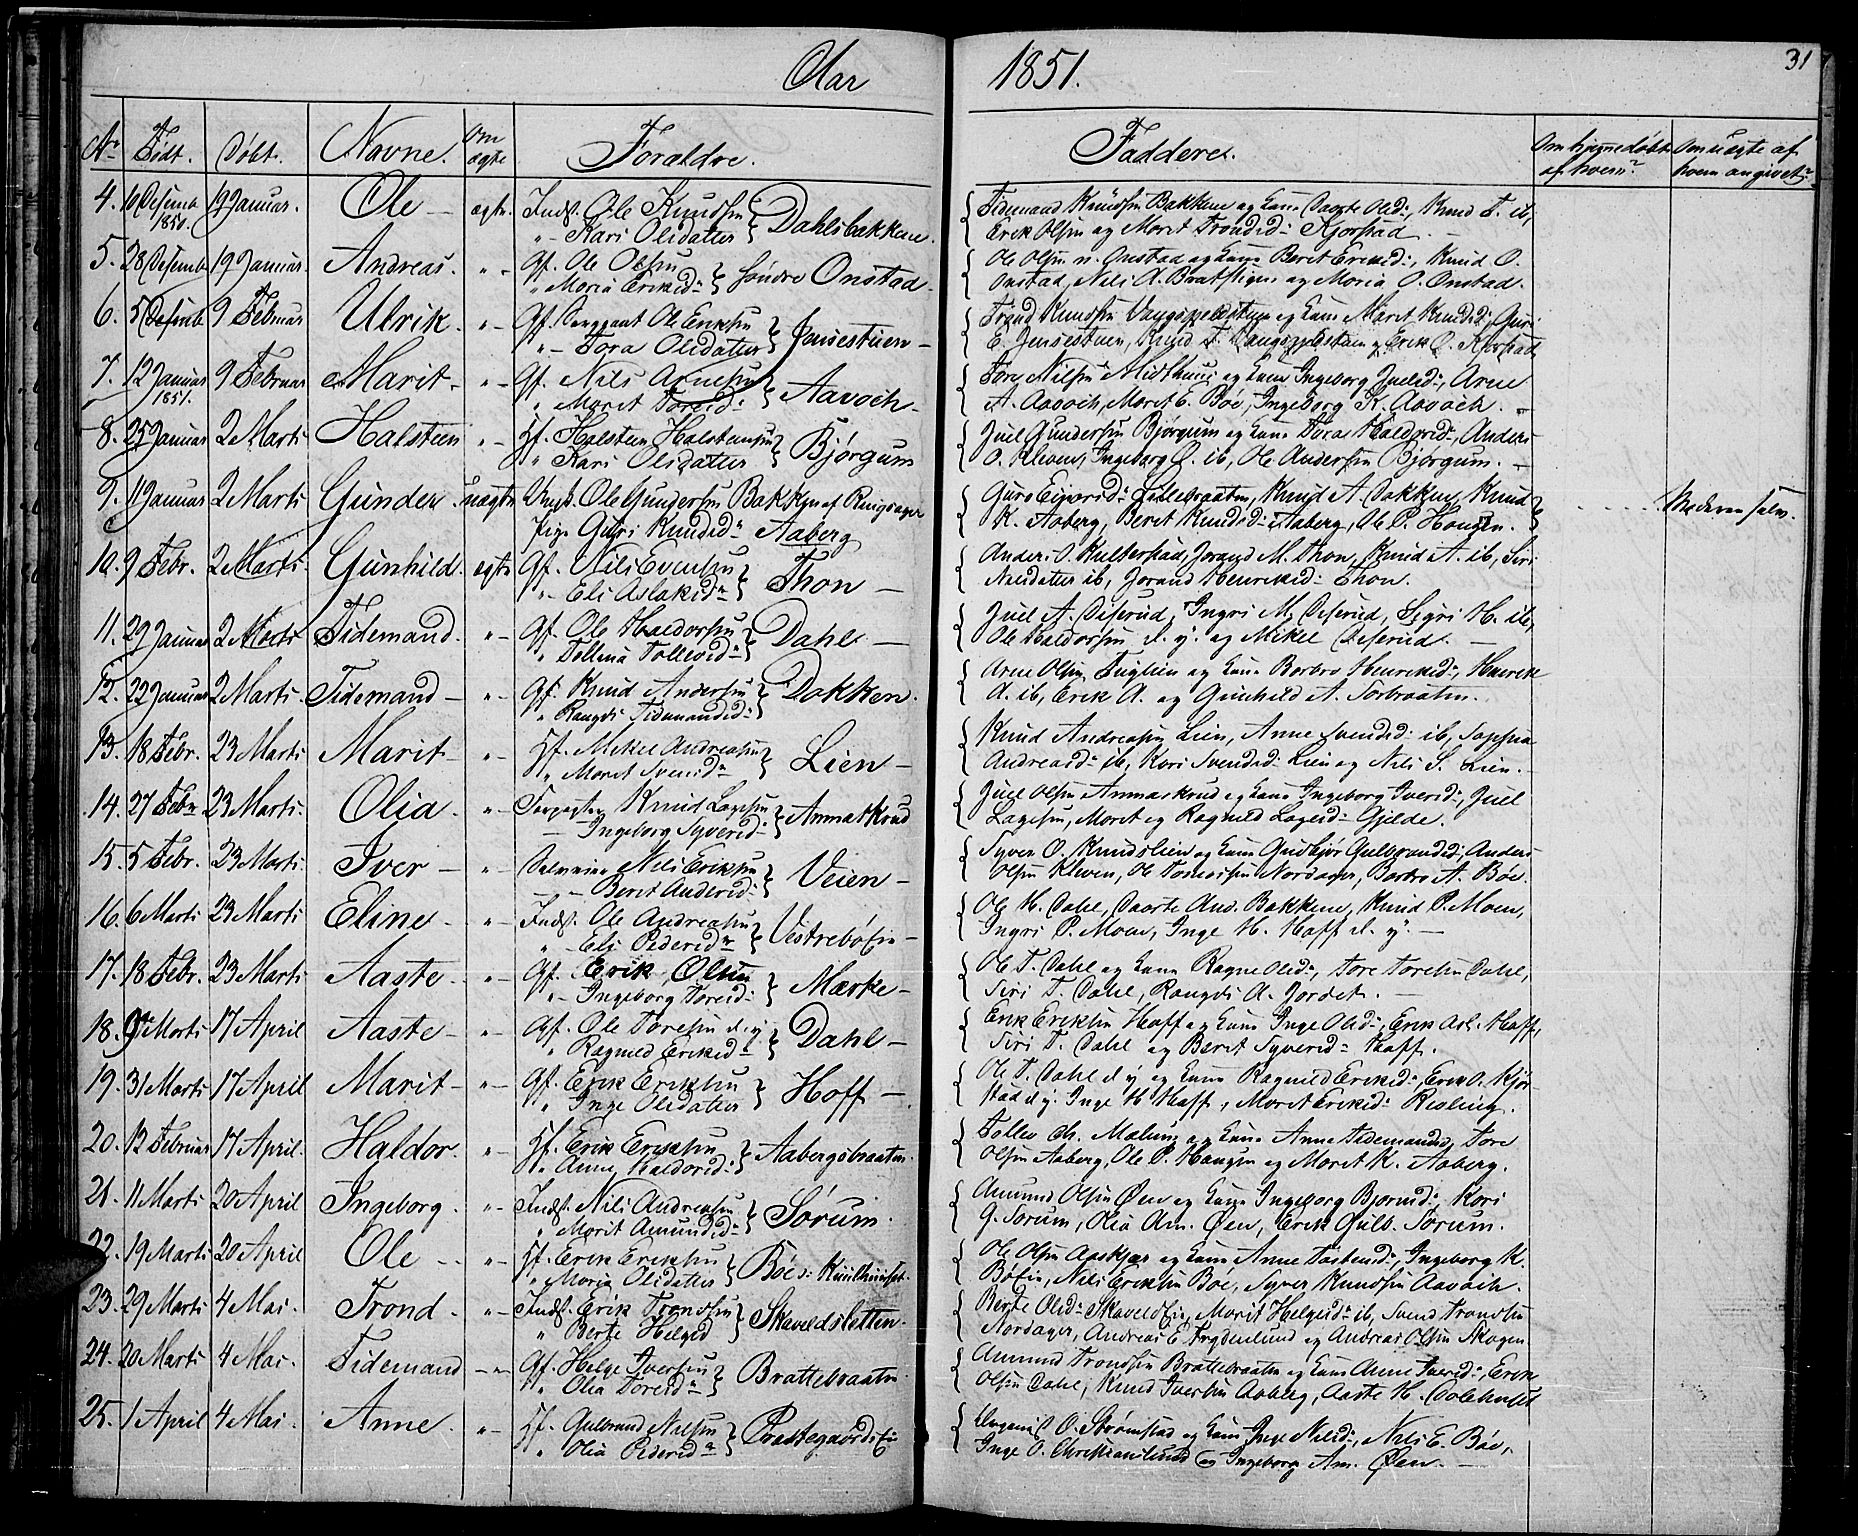 Aar 1851.
31
No Født. Døbt. Navne. Om ægte Forældre. Faddere. Om hjemmedøbt af hvem? Om uægte af hvem angivet?
4. 10 Desemb 1850. 19 Januar. Ole – ægte. Indst. Ole Knudsen
"– Kari Olsdatter } Dahlsbakken.
{ Tidemand Knudsen Bakken og Kone Olsd:, Knud T. ib,
Erik Olsen og Marit Trondsd: Kjørstad –
5. 28 Desemb 19 Januar. Andreas. "– Gf. Ole Olsen
" Maria Eriksd: } Søndre Onstad –
{ Ole Olsen n. Onstad og Kone Beret Eriksd:, Knud O.
Onstad, Nils A. Bratstigen og Maria O. Onstad.
6. 5 Desemb 9 Februar Ulrik. "– Gf. Sergeant Ole Eriksen
"– Tora Olsdatter } Jensestuen –
{ Trond Knudsen og Kone Marit Knudsd:, Guri
E. Jensestuen, Knud T. og Erik O. Kjørstad
7. 12 Januar 1851. 9 Februar Marit – "– Gf. Nils Arnesen
" Marit Toresd: } Aavoch –
{ Tore Nilsen Midthuus og Kone Ingeborg Juelsd:, Arne
A. Aavoch, Marit E. Bøe, Ingeborg K. Aavoch. –
8. 25 Januar 2 Marts Halsteen "– Hf. Halsteen Halsteensen
" Kari Olsdatter } Bjørgum
{ Juel Gundersen Bjørgum og Kone Tora Haldorsd:, Anders
O. Kleven, Ingeborg O. ib, Ole Andersen Bjørgum. –
9. 11 Januar 2 Marts Gunder. uægte Ungk. Ole Gundersen Bakken af Ringsager
Pige Guri Knudsd: Aaberg
{ Guro Lillebraaten, Knud A. Bakken, Knud
K. Aaberg, Beret Knudsd: Aaberg, Ole P. Haugen. } Moderen selv.
10. 9 Febr. 2 Marts Gunhild. ægte Gf. Nils Evensen
"– Eli Aslaksd: } Thon –
{ Anders O. Kulterstad, Jorand M. Thon, Knud A. ib, Siri
Nilsdatter ib, Jorand Henriksd: Thon.
11. 29 Januar 2 Marts Tidemand. "– Gf. Ole Haldorsen
" Tollina Tollevsd: } Dahl –
{ Juel A. Deserud, Ingri M. Deserud, Sigri H. ib,
Ole Haldorsen d. y. og Mikel Deserud. –
12. 22 Januar 2 Marts Tidemand – "– Gf. Knud Andersen
" Rangdi Tidemandsd: } Dokken.
{ Arne Olsen og Kone Barbro Henriksd:, Henrik
A. ib, Erik A. og Gunhild A. Torbraaten.
13. 18 Febr. 23 Marts Marit – "– Hf. Mikel Andreasen
" Marit Svensd: } Lien –
{ Knud Andreasen Lien, Anne Svendsd: ib, Sophia
Andreasd: ib, Kari Svendsd: Lien og Nils S. Lien. –
14. 27 Febr 23 Marts. Olia. "– Forpagter Knud Lagesen
– Ingeborg Syversd: } Anmatkrud
{ Juel Olsen Anmarkrud og Kone Ingeborg Iversd:, Juel
Lagesen, Marit og Ragnild Lagesd: Gjelde.
15. 5 Febr. 23 Marts. Iver – "– Nils Eriksen
–"– Beret Andersd: } Veien –
{ Syver O. Knudslien og Kone Gudbjør Gulbrandsd:, Anders
Olsen Kleven, Ole Nordager, Barbro A. Bøe.
16. 6 Marts 23 Marts Eline – "– Indst. Ole Andreasen
"– Eli Pedersd: } Vestrebøein –
{ Ole H. Dahl, Bakken, Knud P. Moen,
Ingri P. Moen, Inge H. Hoff d. y. –
17. 18 Febr. 23 Marts Aaste. "– Gf. Erik Olsen
"– Ingeborg Toresd: } Mærke –
{ Ole T. Dahl og Kone Ragne Olsd:, Tore Toresen Dahl,
Siri T. Dahl, Rangdi A. Jordet. –
18. 9 Marts 17 April Aaste – "– Gf. Ole Toresen d. y.
" Ragnild Eriksd: } Dahl –
{ Erik Eriksen Hoff og Kone Inge Olsd:, Erik Asl. Hoff,
Siri T. Dahl og Beret Syversd: Hoff.
19. 31 Marts 17 April Marit – "– Gf. Erik Eriksen
" Inge Olsdatter } Hoff –
{ Ole T. Dahl d. y. og Kone Ragnild Eriksd:, Erik O. Kjør-
stad d y. Inge H. Hoff, Marit Eriksd: Risling.
20. 12 Februar 17 April. Haldor. "– Hf. Erik Eriksen
" Anne Haldorsd: } Aabergsbraaten.
{ Tollev Ch. Mælum og Kone Anne Tidemandsd, Tore
Olsen Aaberg, Ole P. Haugen og Marit K. Aaberg.
21. 11 Marts 20 April Ingeborg. "– Indst. Nils Andreasen
" Marit Amundsd: } Sørum.
{ Amund Olsen Øen og Kone Ingeborg Bjørnsd:, Kari
G. Sørum, Olia Am. Øen, Erik Gulb. Sørum.
22. 19 Marts 20 April Ole – "– Hf. Erik Eriksen
" Maria Olsdatter } Bøes:
{ Ole Olsen Aaskjær og Kone Anne Tostensd:, Ingeborg K.
Bøein, Nils Eriksen Bøe, Syver Knudsen Aavoch.
23. 29 Marts 4 Mai. Trond – "– Indst. Erik Trondsen
" Berthe Helgesd } Skaveldsletten.
{ Berthe Olsd: Skaveldein, Marit Helgesd: ib, Svend Trondsen
Nordager, Andreas E. Frydenlund og Andreas Olsen Skogen
24. 20 Marts 4 Mai. Tidemand –"– Gf. Helge Iversen
" Olia Toresd: } Brattebraaten
{ Amund Trondsen Brattebraaten og Kone Anne Iversd:, Erik
Olsen Dahl, Knud Iversen Aaberg, Aaste H.
25. 1 April 4 Mai. Anne. "– Hf. Gulbrand Nilsen
" Olia Pedersd: } Præstegaardsei
{ O. Strømstad og Kone Inge Nilsd:, Nils E. Bøe,
Inge O. Christianslund og Ingeborg Am. Øen. –